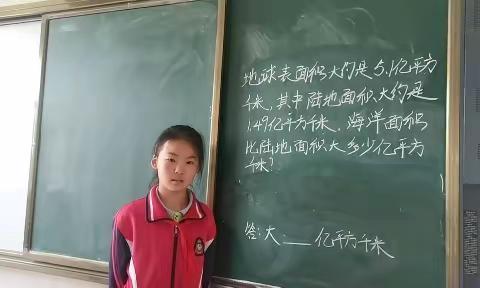 地球表面积大约是5.1亿平方
千米,其中陆地面积大约是
1.49亿平方千米,海洋面积
比陆地面积大多少亿平方
千米?
答:大___亿平方千米